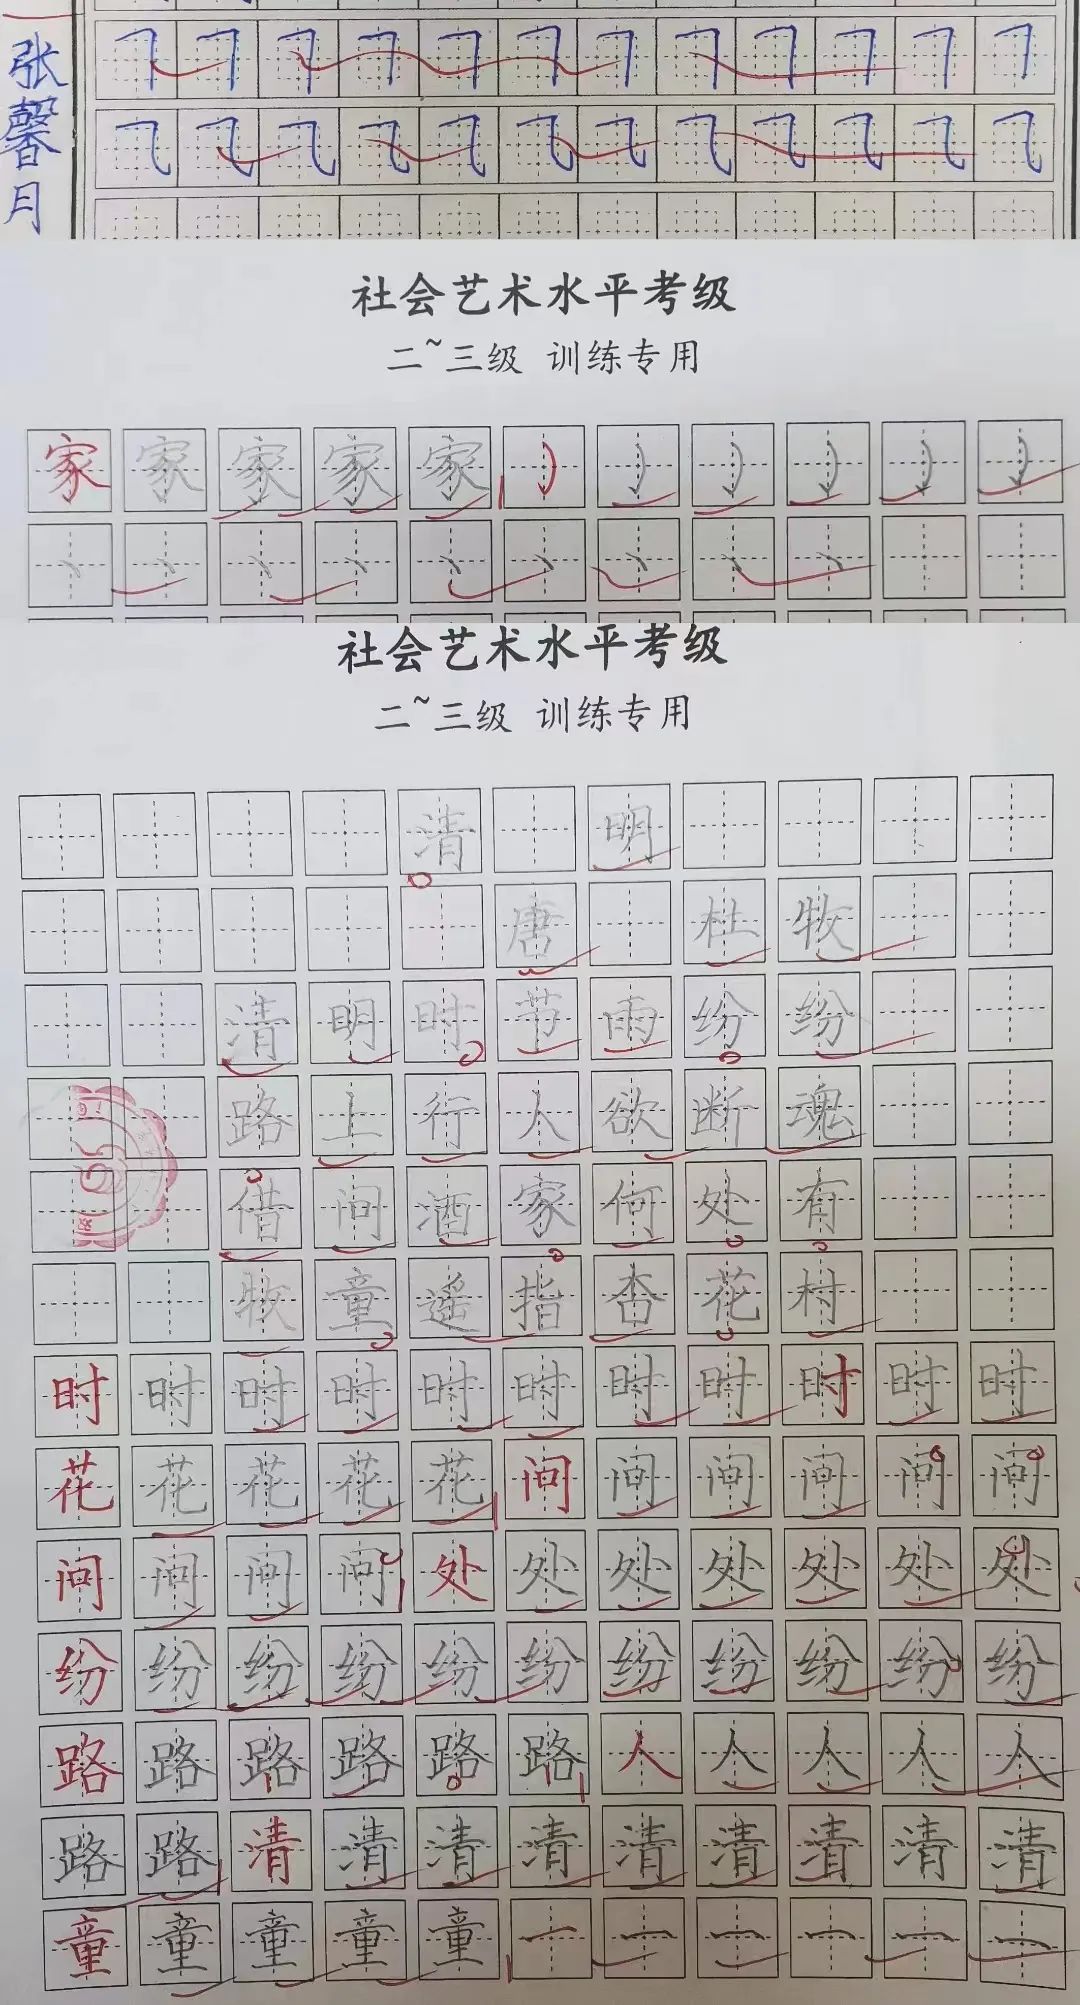 张馨月
社会艺术水平考级
二~三级 训练专用
家家家家家
社会艺术水平考级
二~三级 训练专用
清 明
唐 杜牧
清明时节雨纷纷
路上行人欲断魂
借问酒家何处有
牧童遥指杏花村
时时时时时时时时时时时
花花花花花问问问问问问
问问问问处处处处处处处
纷纷纷纷纷纷纷纷纷纷纷
路路路路路路人人人人人
路路清清清清清清清清清
童童童童童一一一一一一